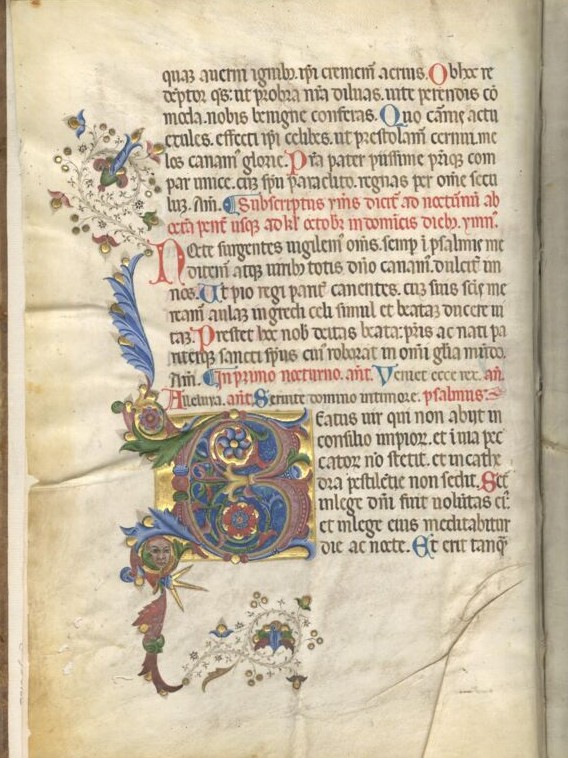 quaʒ auerni ignibꝯ. ip̃i cremem̃ acrius. Ob hoc re
dẽptor q̃s: ut probra nr̃a diluas. uite perennis cõ
moda. nobis benigne conferas. Quo carnẽ actu
exules. effecti ip̃i celibes. ut prestolam̃ cernui. me
los canam̃ glorie. Pr̃a pater piissime pr̃iq̃ com
par unice. cuʒ sp̃u paraclito. regnas per om̃e secu
luʒ. Am̃. Subscriptus ymnꝰ dicit̃ ad nocturnũ ab
octã pent̃ usq̃ ad kl̃ octobr̃ in dominicis diebꝯ. ymnꝰ.
Nocte surgentes uigilem̃ om̃s. semp̃ ĩ psalmis me
ditem̃ atq̃ uiribꝯ totis dño canam̃. dulcit̃ im
nos. Ut pio regi parit̃ canentes. cuʒ suis scĩs me
ream̃ aulaʒ ingredi celi simul et beataʒ ducere ui
taʒ. Prestet hoc nob̃ deitas beata: pr̃is ac nati pa
riterq̃ sancti sp̃us cuiꝰ reboat̃ in omi gl̃ia mũdo.
Am̃. In primo nocturno. añt. Veniet ecce rex. añ.
Alleluya. añt. Seruite domino in timore. psalmus
Beatus uir qui non abijt in
consilio impioꝝ. et ĩ uia pec
catoꝝ nõ stetit. et in cathe
dra pestilẽtie non sedit. Set
in lege dñi fuit uolũtas eiꝰ
et in lege eius meditabitur
die ac nocte. Et erit tanq̃